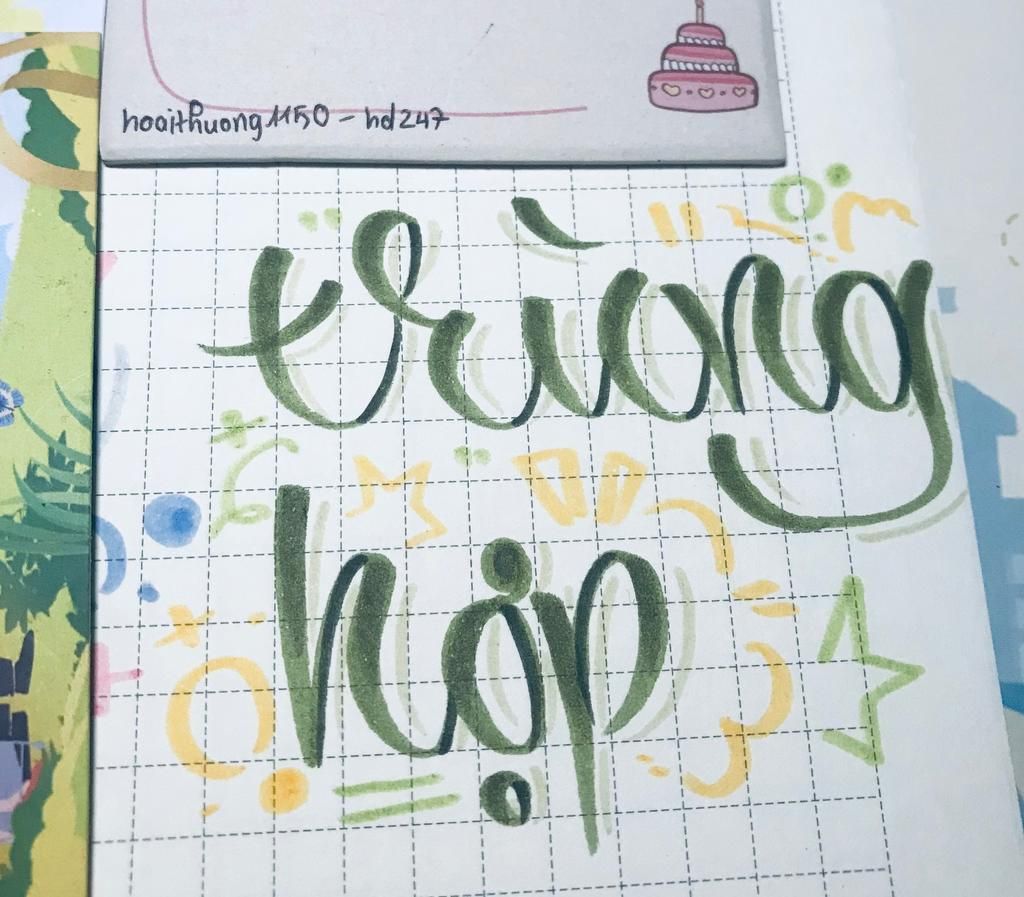 hoaithuong1150 - hd247
trùng
hợp